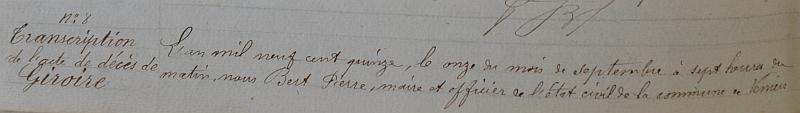 n° 8
Transcription
de l'acte de décès de
Giroire
L'an mil neuf cent quinze, le onze du mois de septembre à sept heures du
matin, nous Bert Pierre, maire et officier de l'état civil de la commune de